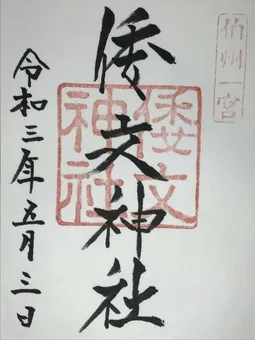 伯州一宮
倭文神社
倭文神社
令和三年五月三日